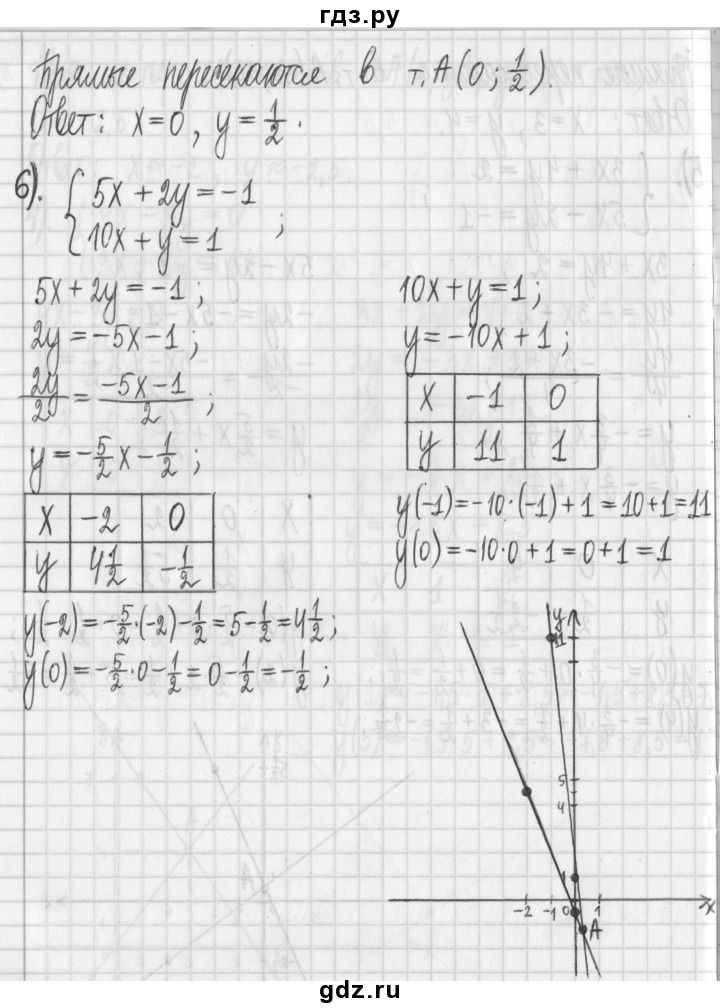 гдз.ру
Прямые пересекаются в т. A(0; 1/2).
Ответ: x=0, y=1/2.
6). { 5x+2y=-1
10x+y=1 ;
5x+2y=-1;
2y=-5x-1;
2y/2 = (-5x-1)/2 ;
y=-5/2x-1/2 ;
x -2 0
y 4 1/2 -1/2
y(-2)=-5/2·(-2)-1/2=5-1/2=4 1/2;
y(0)=-5/2·0-1/2=0-1/2=-1/2 ;
10x+y=1;
y=-10x+1;
x -1 0
y 11 1
y(-1)=-10·(-1)+1=10+1=11
y(0)=-10·0+1=0+1=1
y
11
5
4
1
-2 -1 0 1 x
A
gdz.ru